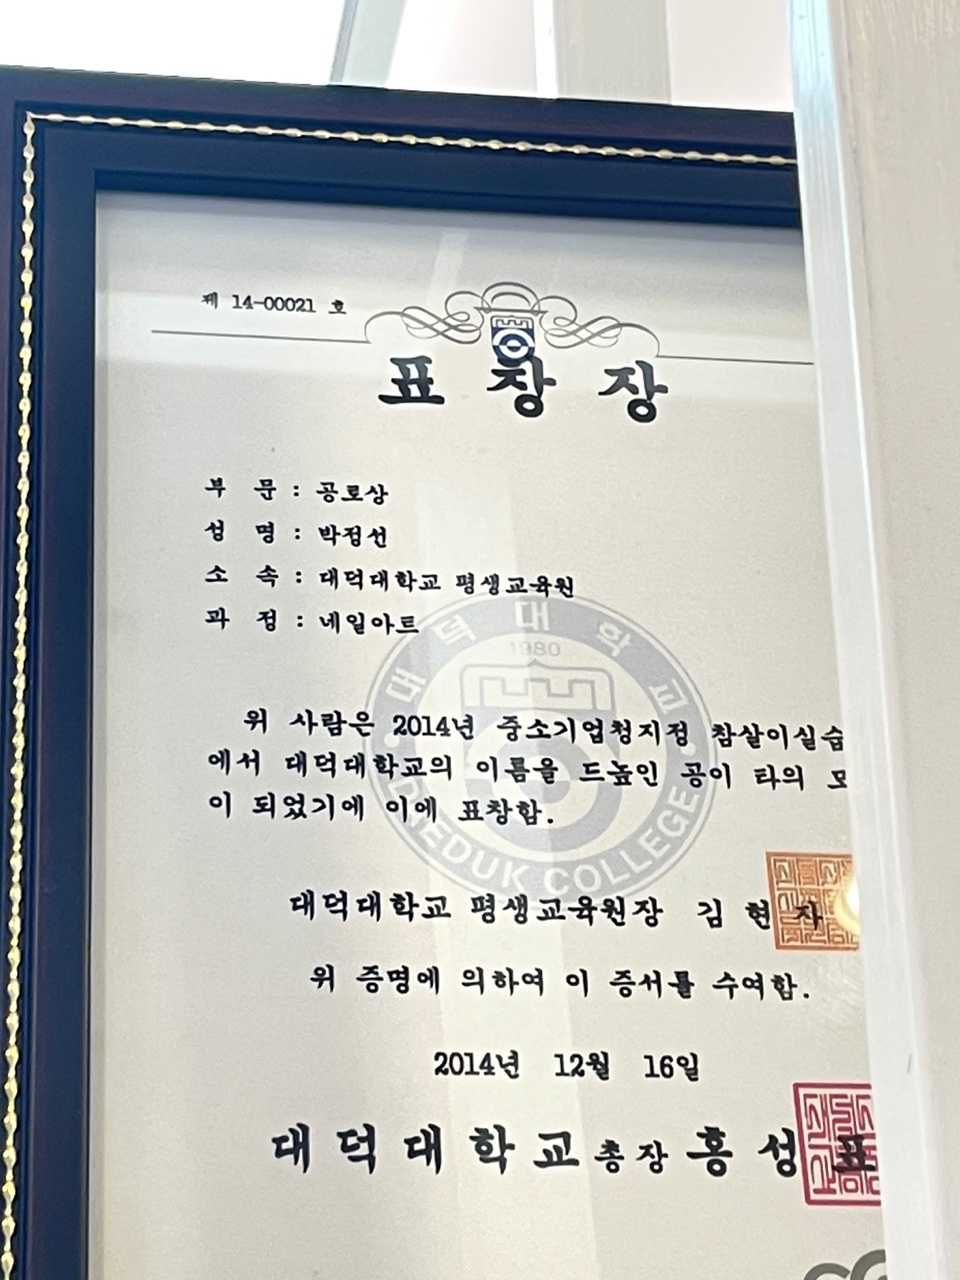 제 14-00021 호
표 창 장
부 문 : 공로상
성 명 : 박점선
소 속 : 대덕대학교 평생교육원
과 정 : 네일아트
대덕대학교
1980
DAEDUK COLLEGE
위 사람은 2014년 중소기업청지정 참살이실습
에서 대덕대학교의 이름을 드높인 공이 타의 모
이 되었기에 이에 표창함.
대덕대학교 평생교육원장 김 현 자
위 증명에 의하여 이 증서를 수여함.
2014년 12월 16일
대 덕 대 학 교 총 장 홍 성 표